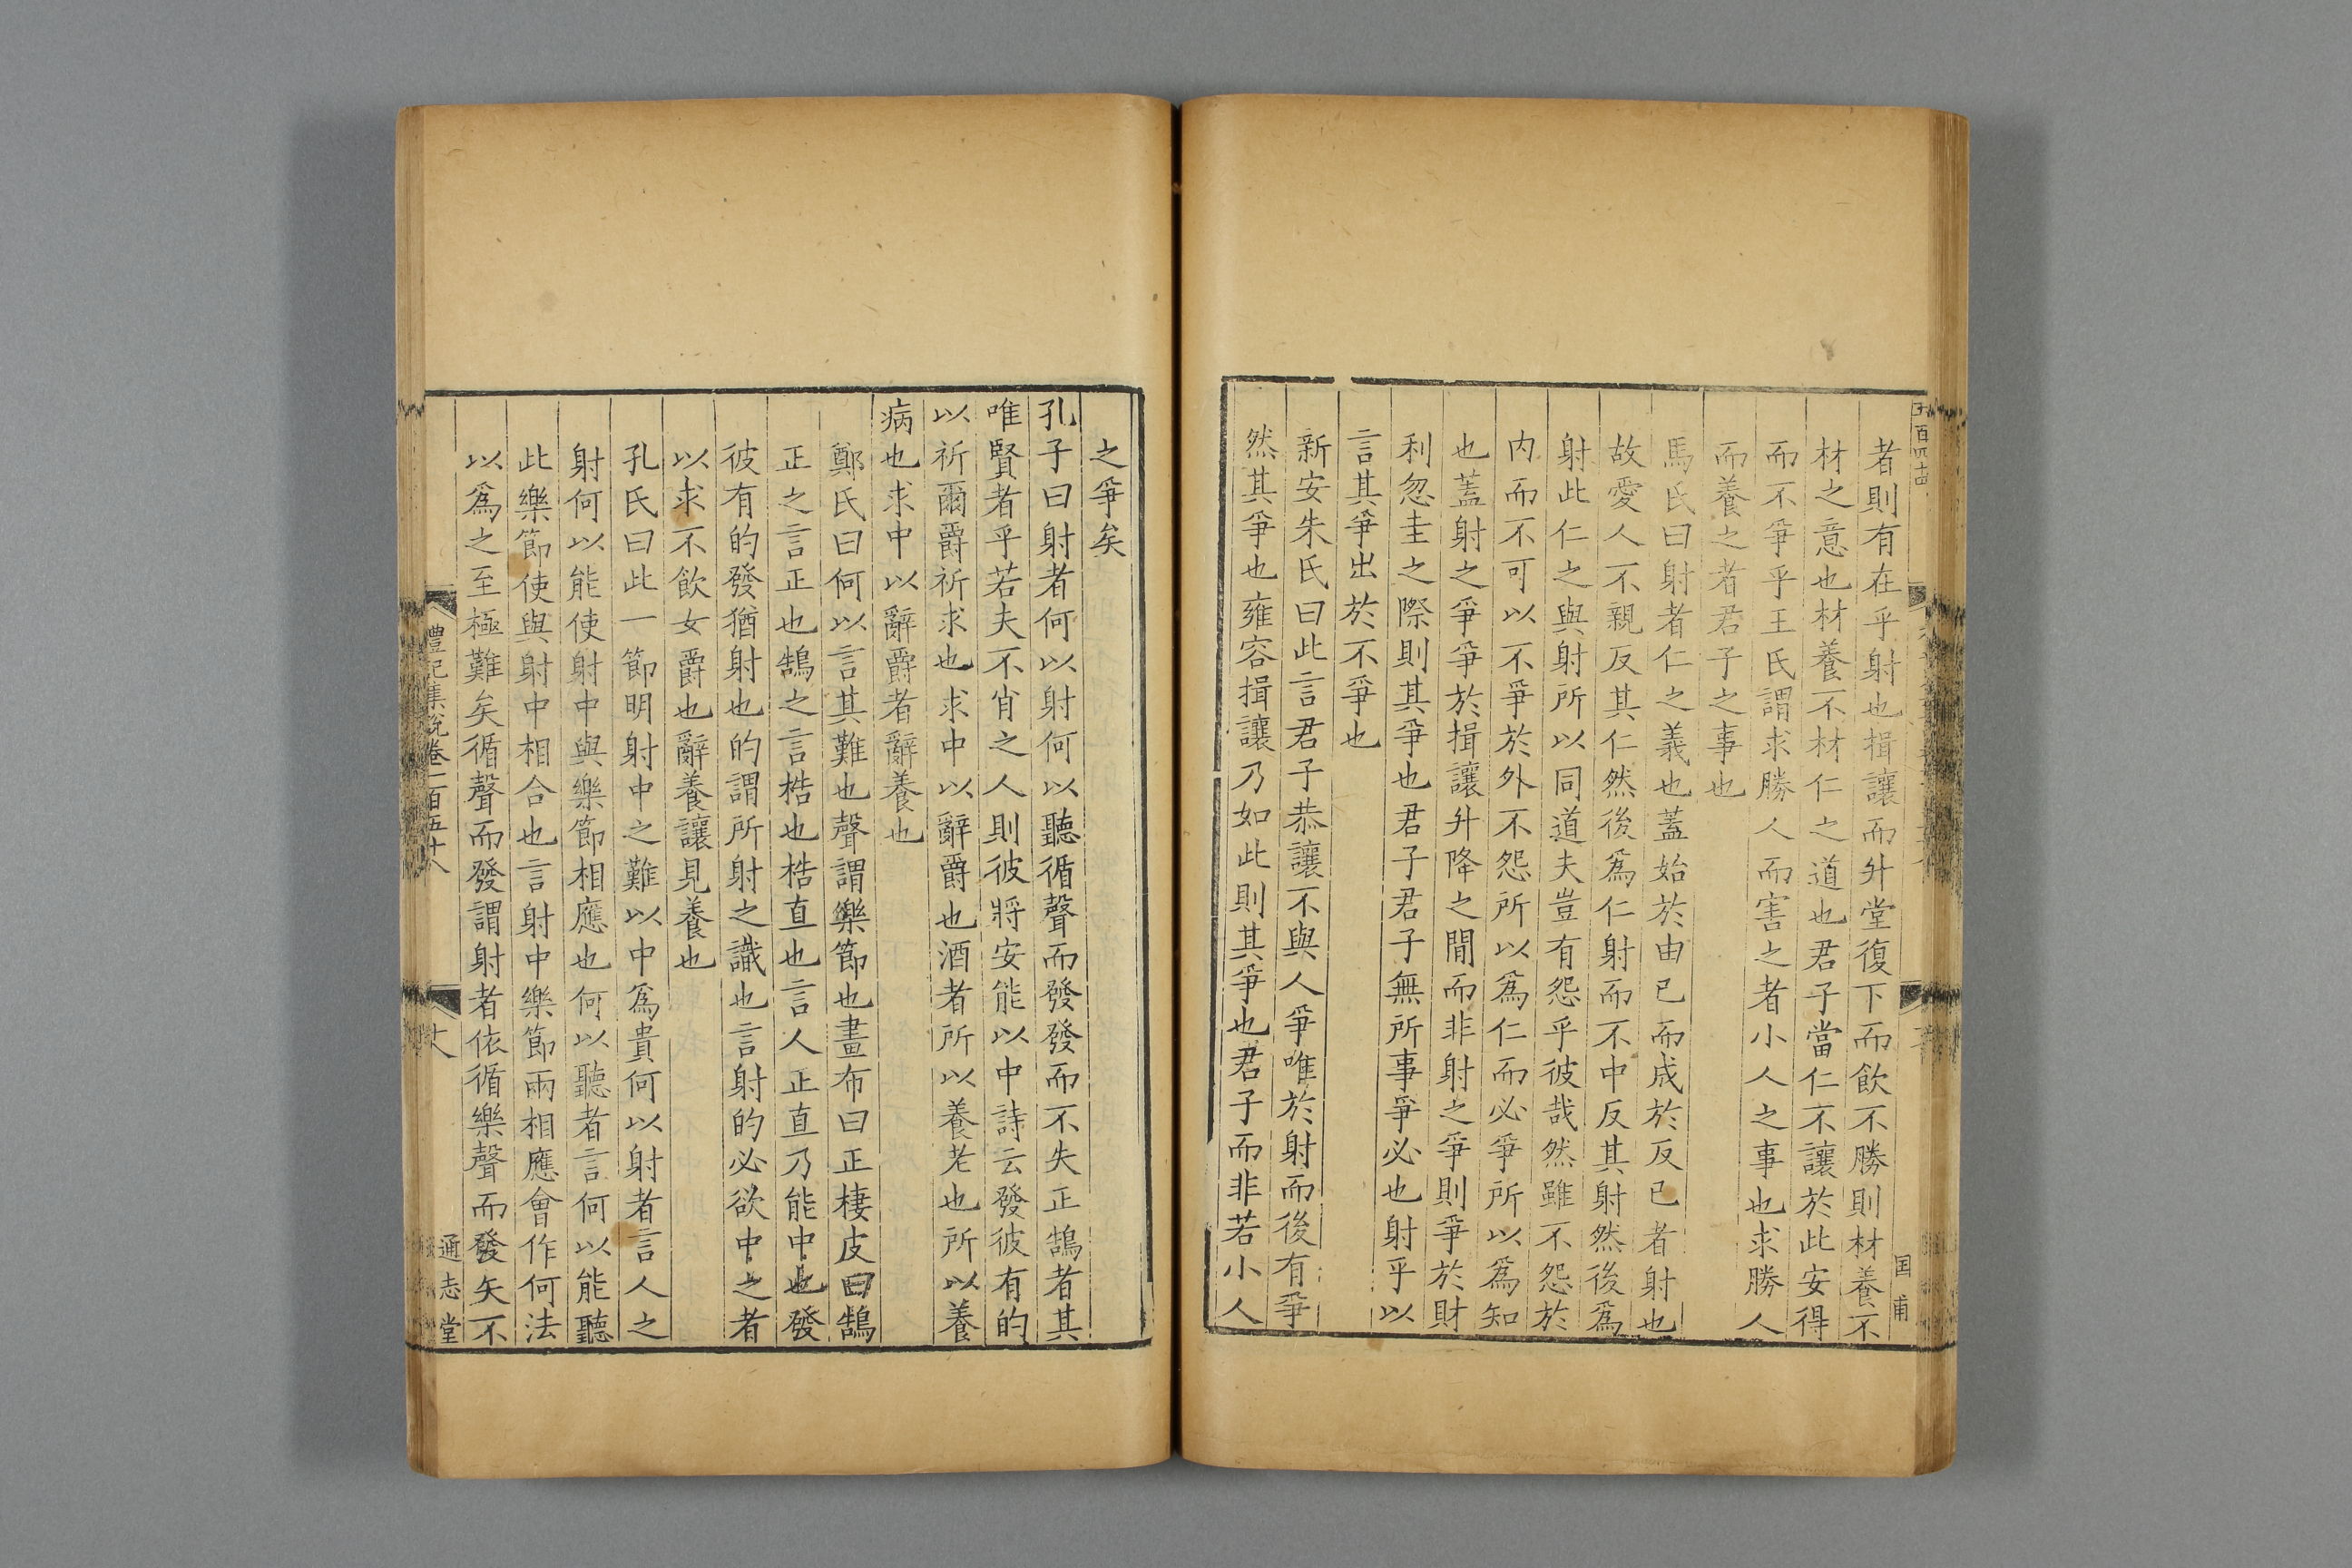 者則有在乎射也揖讓而升堂復下而飲不勝則材養不
材之意也材養不材仁之道也君子當仁不讓於此安得
而不爭乎王氏謂求勝人而害之者小人之事也求勝人
而養之者君子之事也
馬氏曰射者仁之義也蓋始於由已而成於反已者射也
故愛人不親反其仁然後爲仁射而不中反其射然後爲
射此仁之與射所以同道夫豈有怨乎彼哉然雖不怨於
内而不可以不爭於外不怨所以爲仁而必爭所以爲知
也蓋射之爭爭於揖讓升降之間而非射之爭則爭於財
利忽圭之際則其爭也君子君子無所事爭必也射乎以
言其爭出於不爭也
新安朱氏曰此言君子恭讓不與人爭唯於射而後有爭
然其爭也雍容揖讓乃如此則其爭也君子而非若小人
之爭矣
孔子曰射者何以射何以聽循聲而發發而不失正鵠者其
唯賢者乎若夫不肖之人則彼將安能以中詩云發彼有的
以祈爾爵祈求也求中以辭爵也酒者所以養老也所以養
病也求中以辭爵者辭養也
鄭氏曰何以言其難也聲謂樂節也畫布曰正棲皮曰鵠
正之言正也鵠之言梏也梏直也言人正直乃能中也發
彼有的發猶射也的謂所射之識也言射的必欲中之者
以求不飲女爵也辭養讓見養也
孔氏曰此一節明射中之難以中爲貴何以射者言人之
射何以能使射中與樂節相應也何以聽者言何以能聽
此樂節使與射中相合也言射中樂節兩相應會作何法
以爲之至極難矣循聲而發謂射者依循樂聲而發矢不
禮記集說卷一百五十八
十八
通志堂